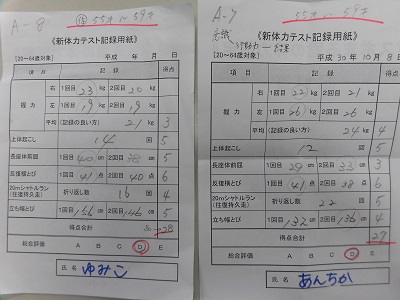 A-8 55才～59才
《新体力テスト記録用紙》
【20～64歳対象】 平成 年 月 日
項目 記録 得点
握力 右 1回目 23 kg 2回目 20 kg
左 1回目 19 kg 2回目 19 kg
平均 (記録の良い方) 21 kg 3
上体起こし 14 回 5
長座体前屈 1回目 40 cm 2回目 38 cm 5
反復横とび 1回目 41 点 2回目 40 点 6
20mシャトルラン (往復持久走) 折り返し数 16 回 4
立ち幅とび 1回目 156 cm 2回目 146 cm 5
得点合計 28
総合評価 A B C D E
氏名 ゆみこ
A-7 55才～59才
《新体力テスト記録用紙》
【20～64歳対象】 平成 30 年 10 月 8 日
項目 記録 得点
握力 右 1回目 22 kg 2回目 21 kg
左 1回目 26 kg 2回目 kg
平均 (記録の良い方) 24 kg 4
上体起こし 12 回 5
長座体前屈 1回目 29 cm 2回目 33 cm 3
反復横とび 1回目 41 点 2回目 38 点 6
20mシャトルラン (往復持久走) 折り返し数 22 回 5
立ち幅とび 1回目 132 cm 2回目 136 cm 4
得点合計 27
総合評価 A B C D E
氏名 あんちか